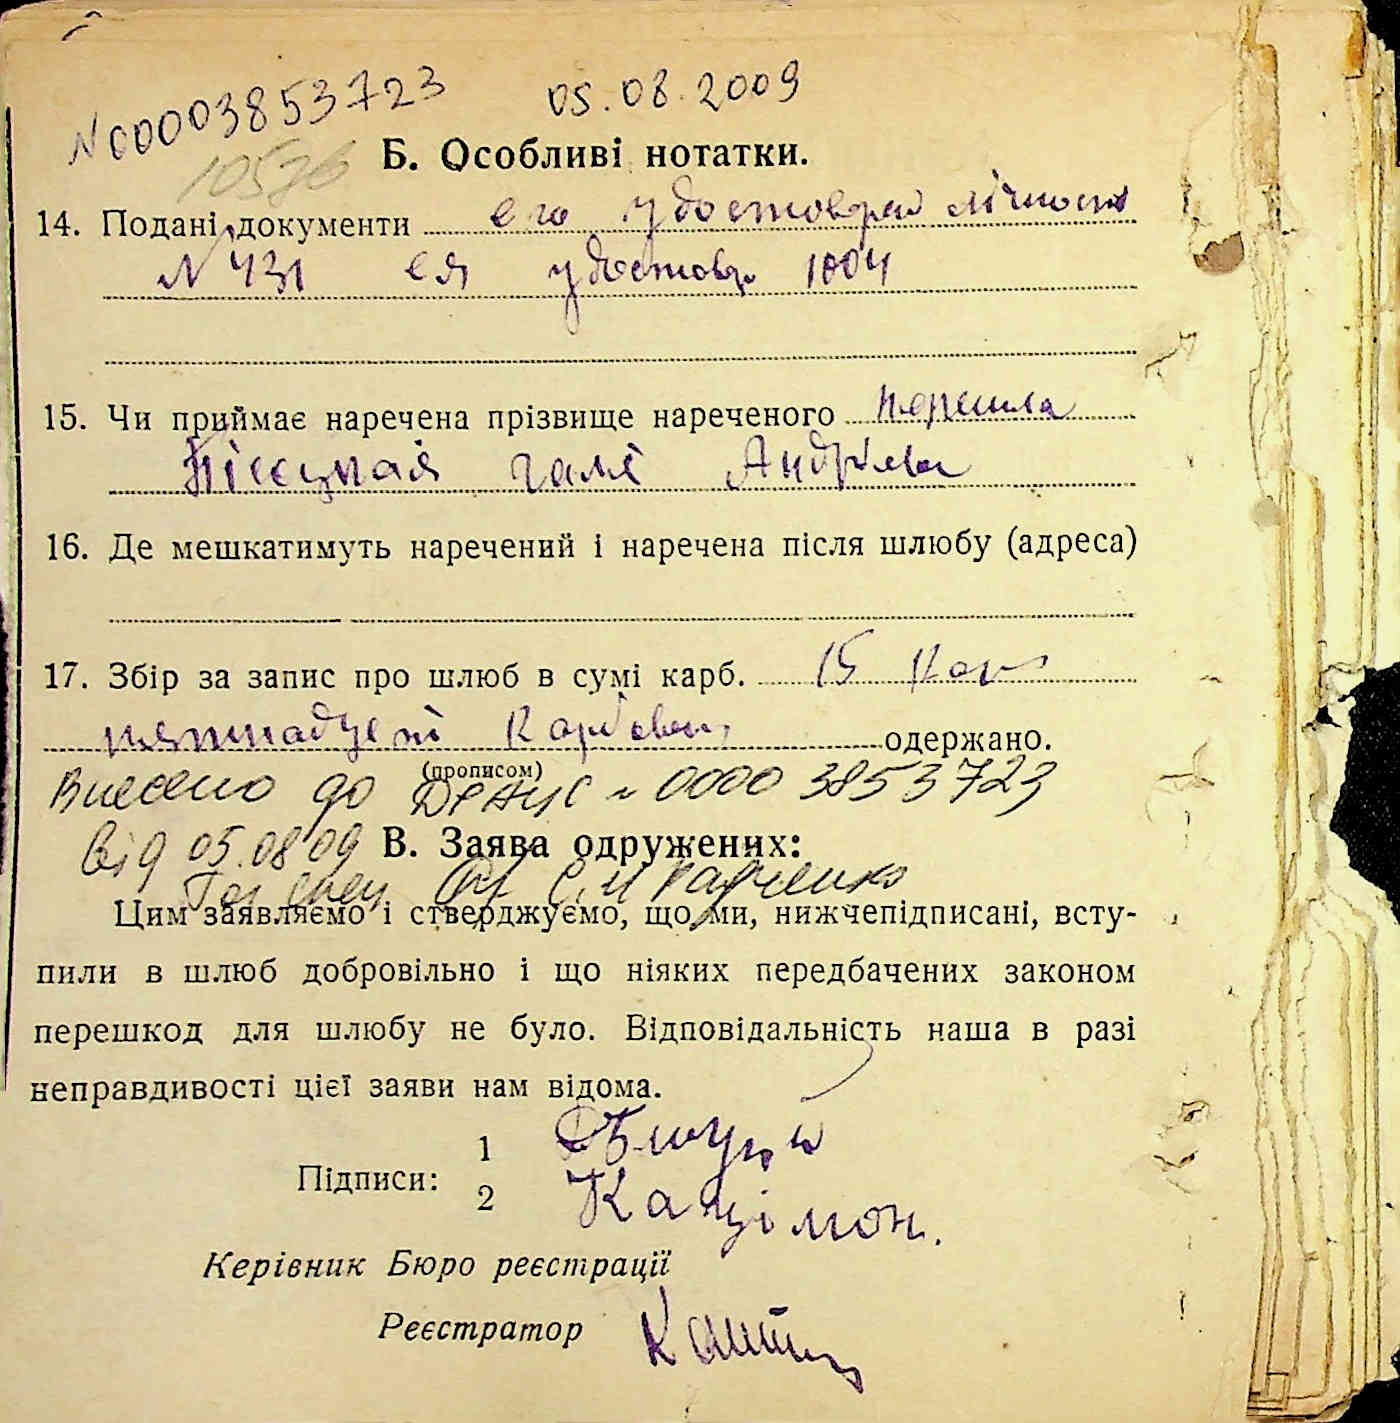 N 00003853723 05.08.2009
10576
Б. Особливі нотатки.
14. Подані документи его удостовірен лічности
N 431 ея удостовір 1004
15. Чи приймає наречена прізвище нареченого перешла
Галі Андріева
16. Де мешкатимуть наречений і наречена після шлюбу (адреса)
17. Збір за запис про шлюб в сумі карб. 15 кар
пятнадцеті Карбован, одержано.
(прописом)
Внесено до ДРАЦС N 00003853723
від 05.08.09
В. Заява одружених:
Гол спец С.М Радченко
Цим заявляємо і стверджуємо, що ми, нижчепідписані, всту-
пили в шлюб добровільно і що ніяких передбачених законом
перешкод для шлюбу не було. Відповідальність наша в разі
неправдивості цієї заяви нам відома.
Підписи:
1
2 Кацімон.
Керівник Бюро реєстрації
Реєстратор